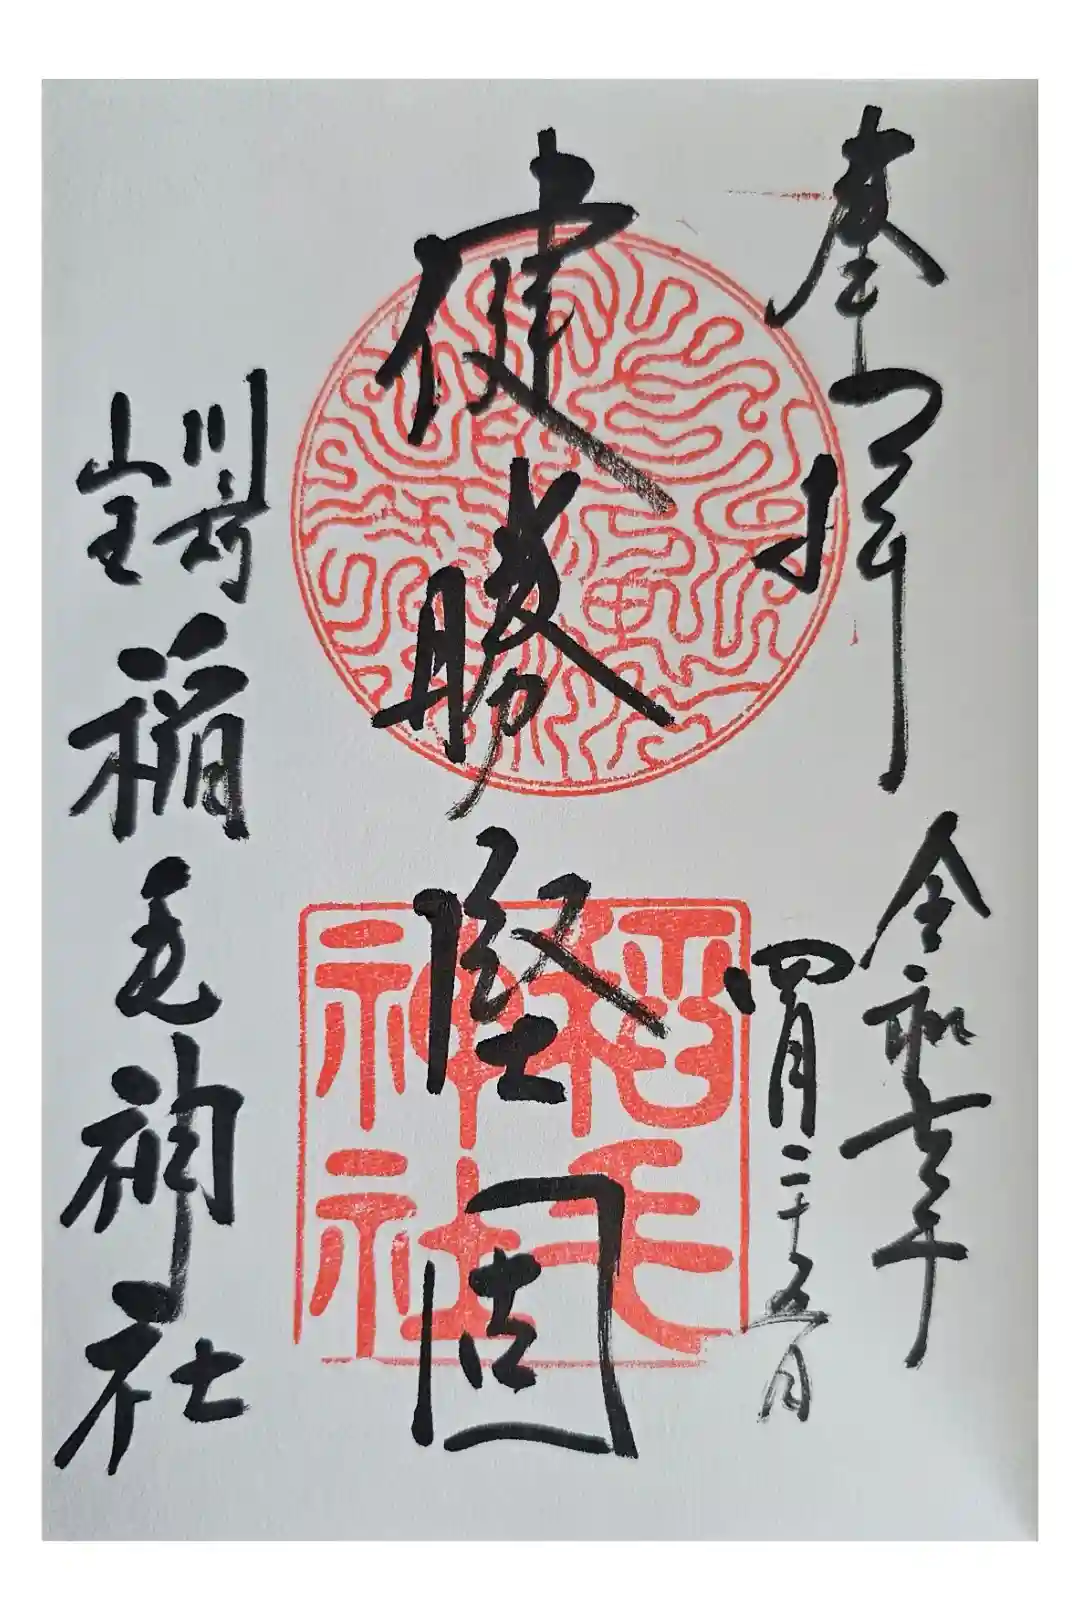 奉拝
令和年
四月二十五日
健勝堅固
川崎
山王
稲毛神社
稲毛
神社